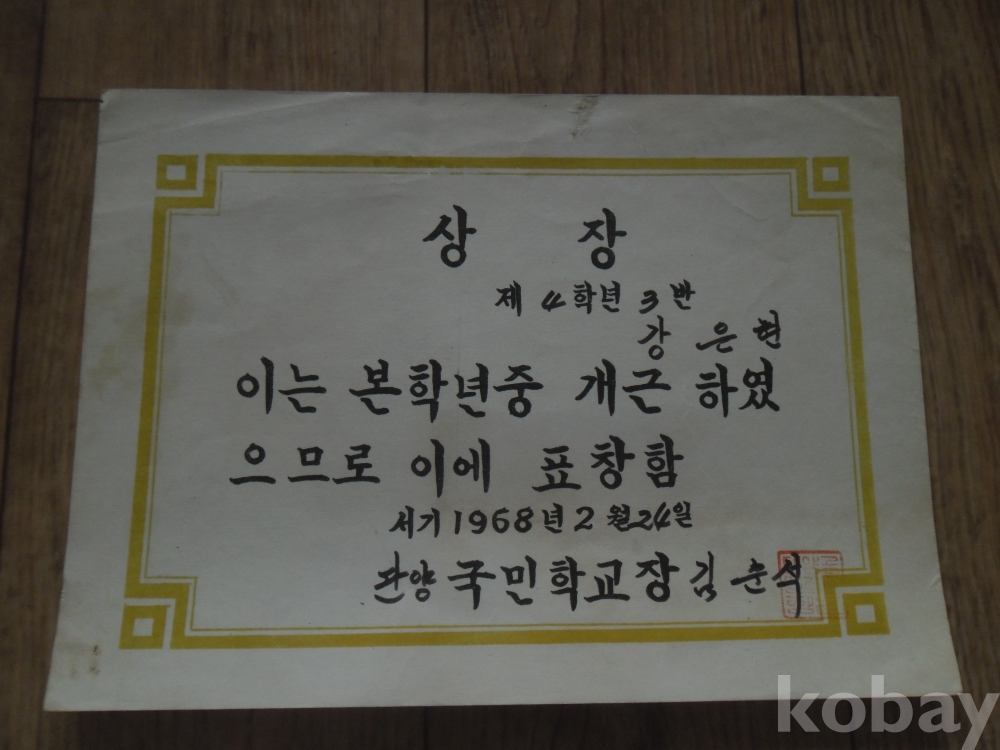 상 장
제 4 학년 3 반
강 은 현
이는 본학년중 개근 하였
으므로 이에 표창함
서기 1968 년 2 월 24 일
단양 국민학교장 김 순 석
kobay